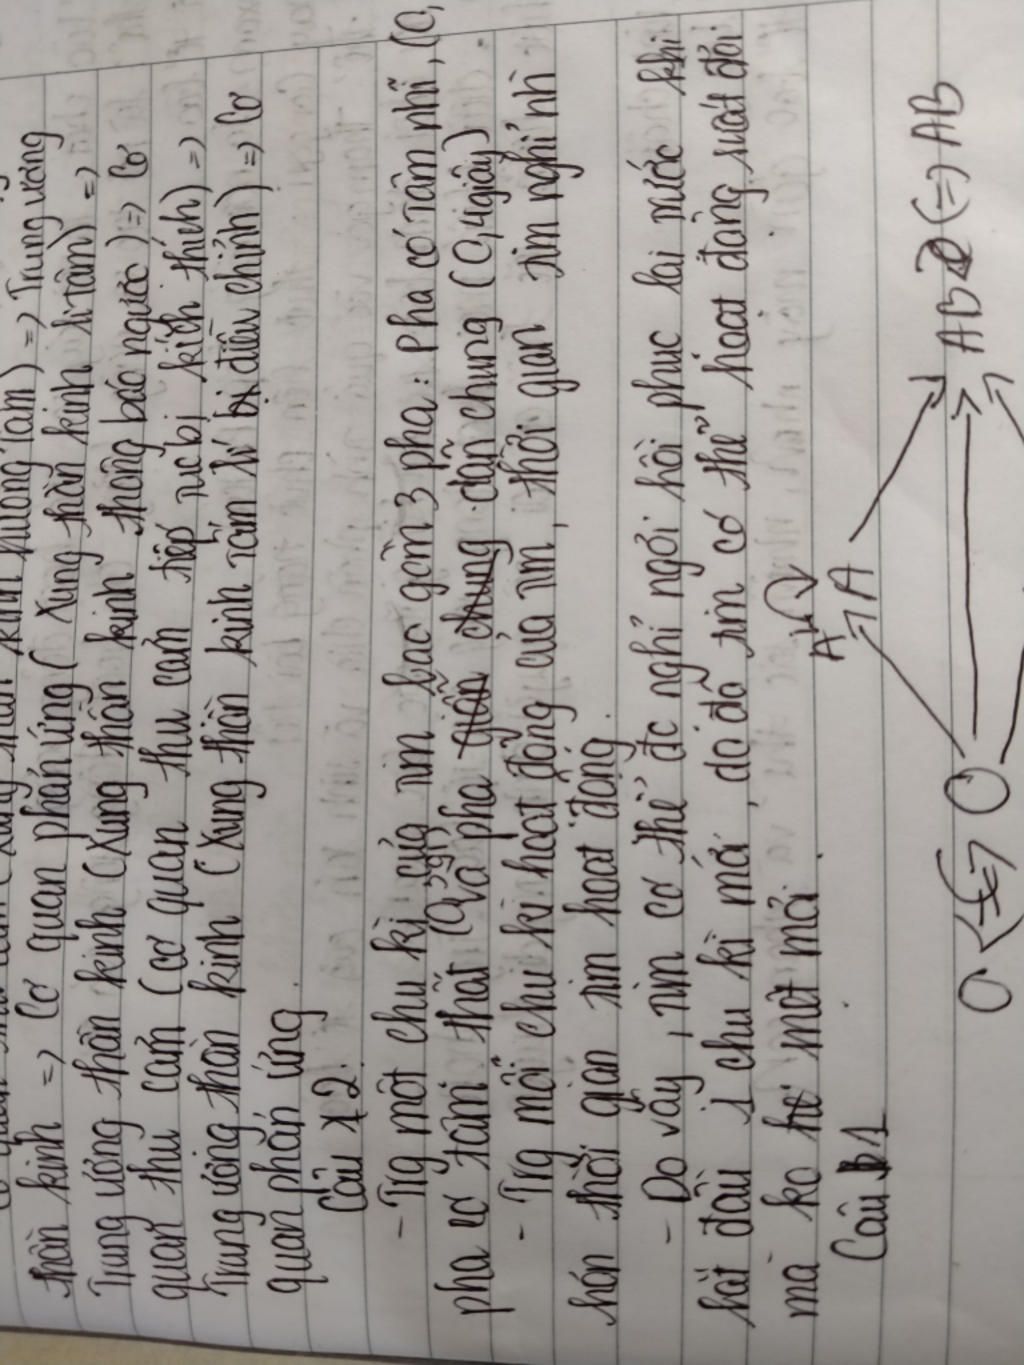 thần kinh => Cơ quan phản ứng ( Xung thần kinh li tâm) =>
Trung ương thần kinh (Xung thần kinh thông báo ngược) => Cơ
quan thu cảm (cơ quan thu cảm tiếp tục bị kích thích) =>
Trung ương thần kinh (Xung thần kinh tâm li bị điều chỉnh) => Cơ
quan phản ứng.
Câu 2
- Trg một chu kì của tim bao gồm 3 pha : Pha co tâm nhĩ, (0,
pha co tâm thất (0,3g) và pha giãn chung dãn chung (0,4giây)
- Trg mỗi chu kì hoạt động của tim, thời gian tim nghỉ nh
hơn thời gian tim hoạt động.
- Do vậy, tim có thể đc nghỉ ngơi hồi phục lại trước khi
bắt đầu 1 chu kì mới, do đó tim có thể hoạt động suốt đời
mà ko mệt mỏi.
Câu 1
A
A
O (<=>) O
AB (=> AB